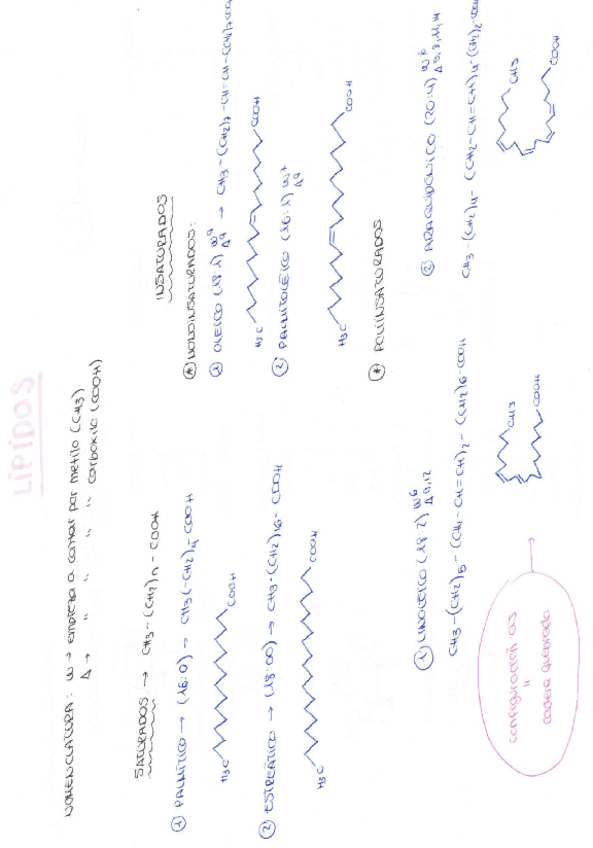 LÍPIDOS
NOMENCLATURA: ω → empieza a contar por metilo (CH3)
Δ → " " " " carboxilo (COOH)
SATURADOS → CH3-(CH2)n-COOH
① PALMÍTICO → (16:0) → CH3(-CH2)14-COOH
H3C COOH
② ESTEREÁTICO → (18:00) → CH3-(CH2)16-COOH
H3C COOH
INSATURADOS
* MONOINSATURADOS:
① OLEICO (18:1) ω9 Δ9 → CH3-(CH2)7-CH=CH-(CH2)7-COOH
H3C COOH
② PALMITOLEICO (16:1) ω7 Δ9
H3C COOH
* POLIINSATURADOS
① LINOLEICO (18:2) ω6 Δ9,12
CH3-(CH2)5-(CH2-CH=CH)2-(CH2)6-COOH
CH3
COOH
configuración cis
"
cadena quebrada
② ARAQUIDÓNICO (20:4) ω6 Δ5,8,11,14
CH3-(CH2)4-(CH2-CH=CH)4-(CH2)2-COOH
CH3
COOH